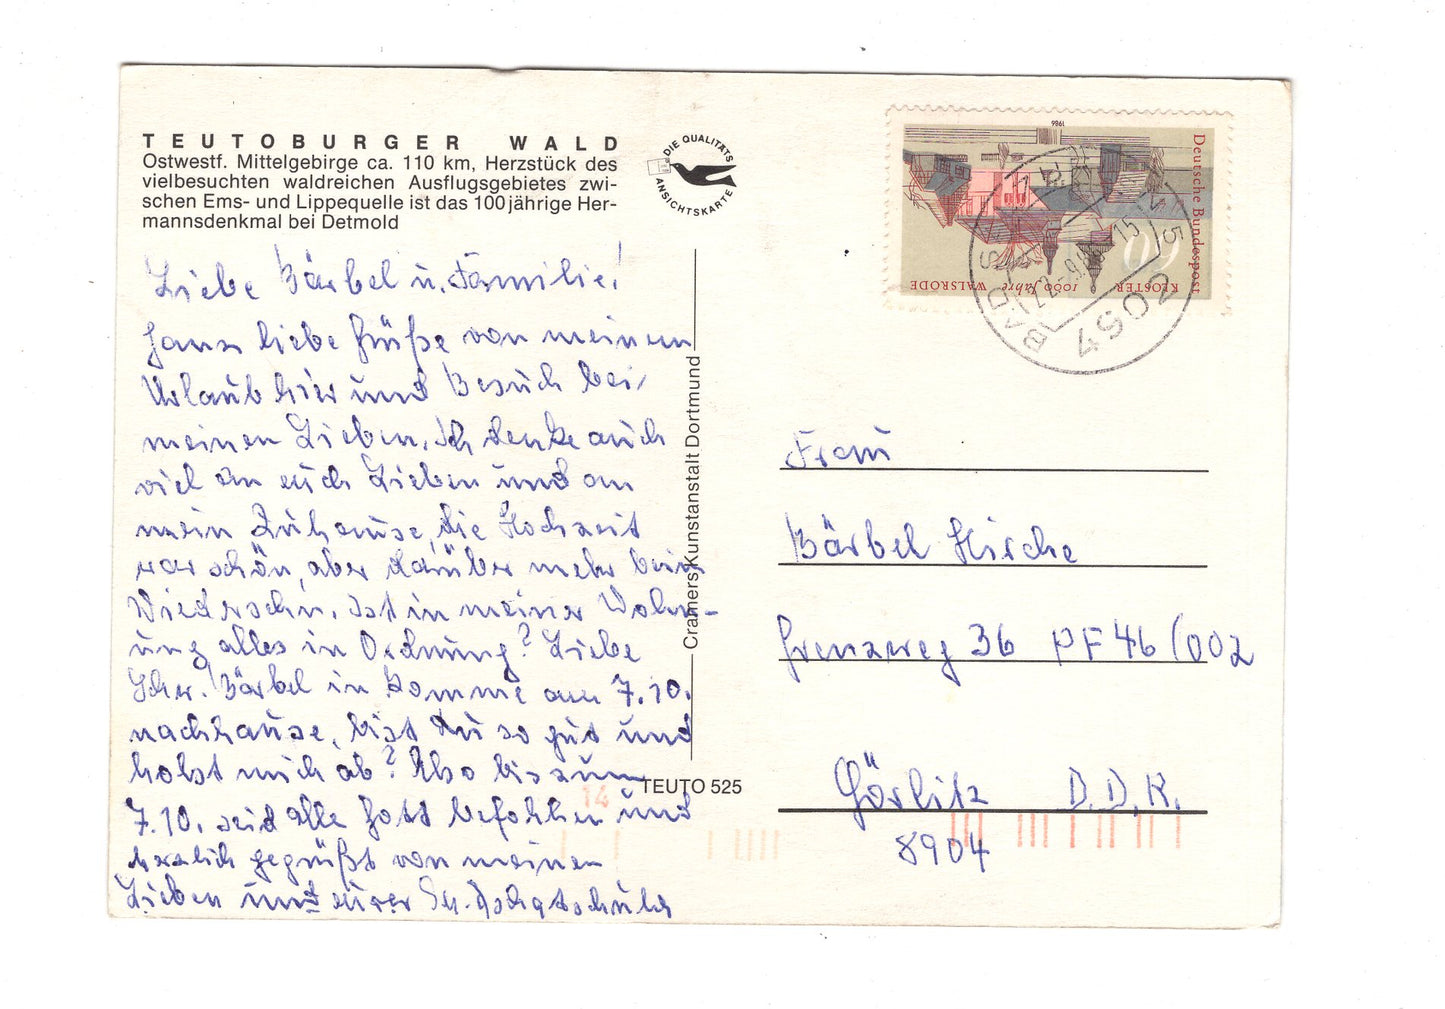 TEUTOBURGER WALD
Ostwestf. Mittelgebirge ca. 110 km, Herzstück des
vielbesuchten waldreichen Ausflugsgebietes zwi-
schen Ems- und Lippequelle ist das 100jährige Her-
mannsdenkmal bei Detmold
DIE QUALITÄTS
ANSICHTSKARTE
Liebe Bärbel u. Familie!
Ganz liebe Grüße von meinem
Urlaub hier und Besuch bei
meinen Lieben. Ich denke auch
viel an euch Lieben und an
mein Zuhause, die Hochzeit
war schön, aber darüber mehr beim
Wiedersehn. Ist in meiner Wohn-
ung alles in Ordnung? Liebe
Schw. Bärbel ich komme am 7.10.
nachhause, bist du so gut und
holst mich ab? Also bis zum
7.10. seid alle Gott befohlen und
herzlich gegrüßt von meinen
Lieben und eurer
Cramers Kunstanstalt Dortmund
TEUTO 525
14
1986
Deutsche Bundespost
60
KLOSTER
1000 Jahre
WALSRODE
4502
BAD
Frau
Bärbel Hirche
Grenzweg 36 PF 46/002
Görlitz D.D.R.
8904